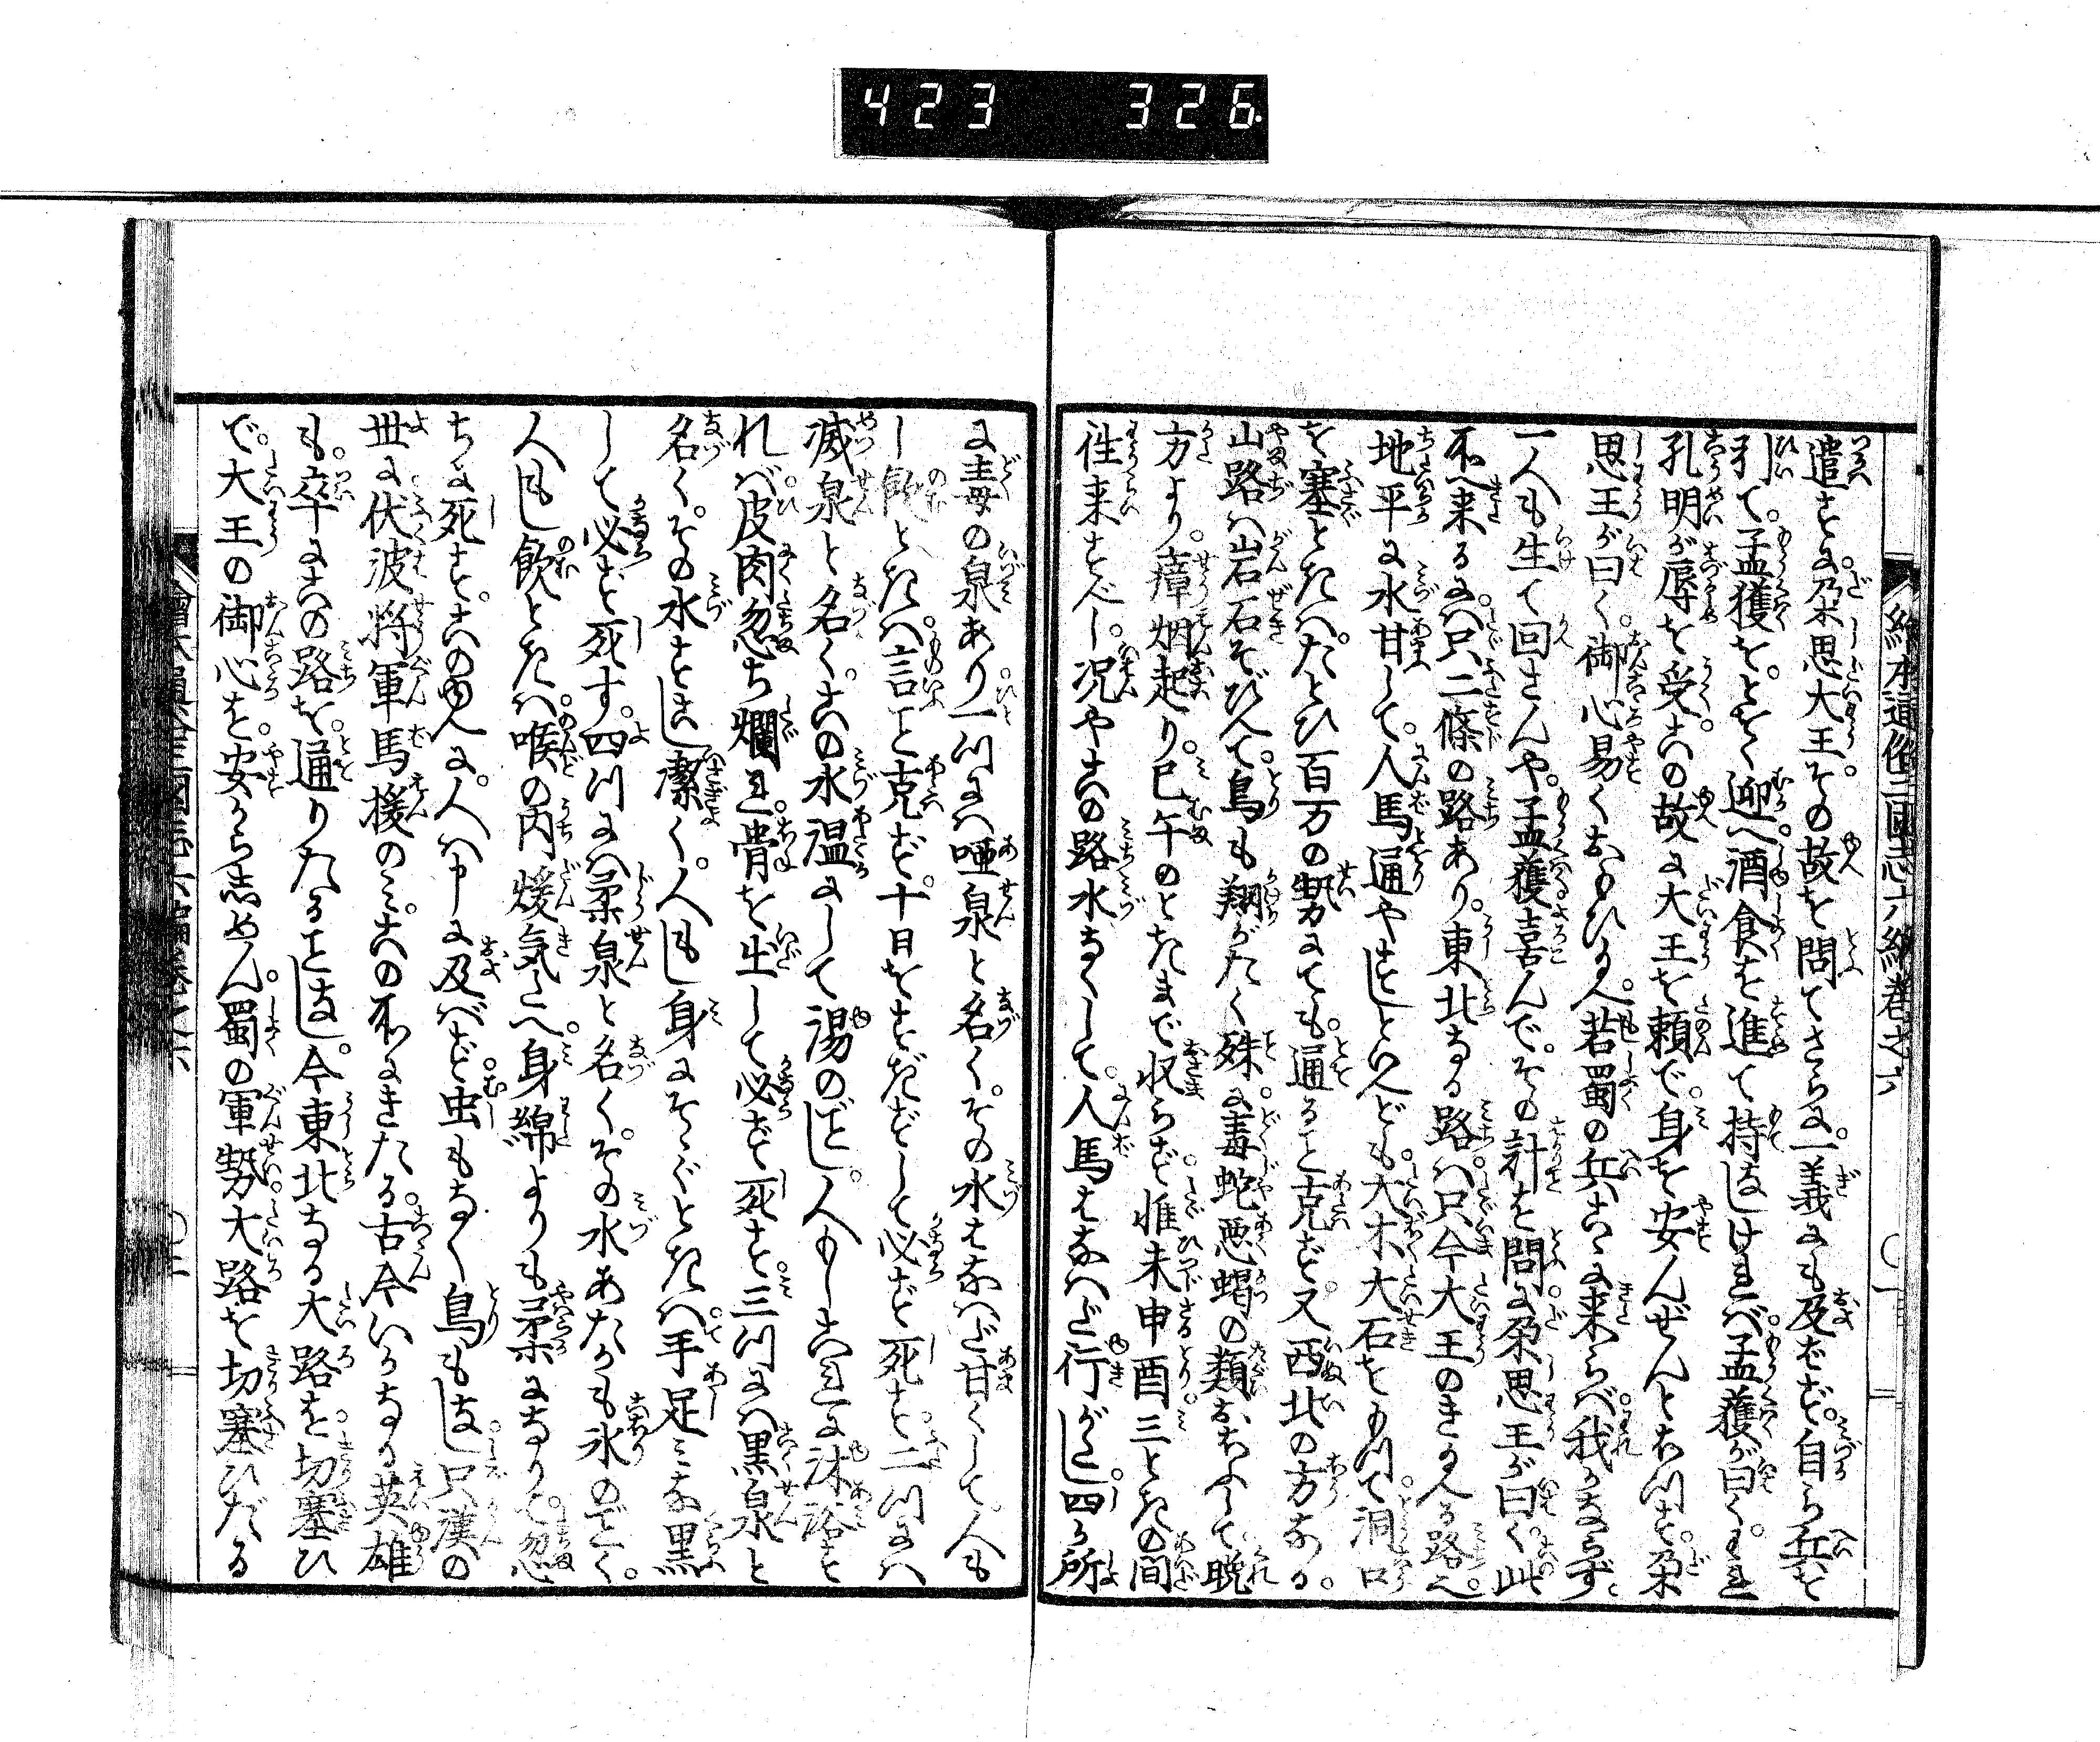 423 326
繪本通俗三國志六編巻之六
遣すに朶思大王その故を問てさらに一義にも及ばず自ら兵を
引て孟獲をとをく迎へ酒食を進て持なしければ孟獲が曰くわれ
孔明が辱を受この故に大王を頼で身を安んぜんとおつす朶
思王が曰く御心易くおもひ給へ若蜀の兵こゝに来らば我かならず
一人も生て回さんや孟獲喜んでその計を問に朶思王が曰く此
不へ来るには只二條の路あり東北なる路は只今大王のき給へる路
地平に水甘して人馬通やすしといへども大木大石をもつて洞口
を塞ときはたとひ百万の勢にても通ること克ず又西北の方なる
山路は岩石そびへて鳥も翔がたく殊に毒蛇悪蝎の類おおふして晩
方より瘴烟起り巳午のときまで収らず惟未申酉三ときの間
往来すべし況やこの路水なくして人馬もなへど行がたし四か所
に毒の泉あり一つには啞泉と名くその水はなはだ甘くして人も
し飲ときは言こと克ず十日をすぎずして必ず死す二つには
滅泉と名くこの水温にして湯のごとし人もしこれに沐浴す
れば皮肉忽ち爛れ骨を出して必ず死す三つには黒泉と
名くその水すこし潔く人もし身にそゝぐときは手足みな黒
して必ず死す四つには柔泉と名くその水あたかも氷のごとく
人もし飲ときは喉の内煖気たへ身綿よりも柔になりて忽
ちに死すこの四へに人は申に及ばず虫もなく鳥もなし只漢の
世に伏波将軍馬援のみこの不にきたる古今いかなる英雄
も卒にこの路を通りたることなし今東北なる大路を切塞ひ
で大王の御心を安からしめん蜀の軍勢大路を切塞ひだる